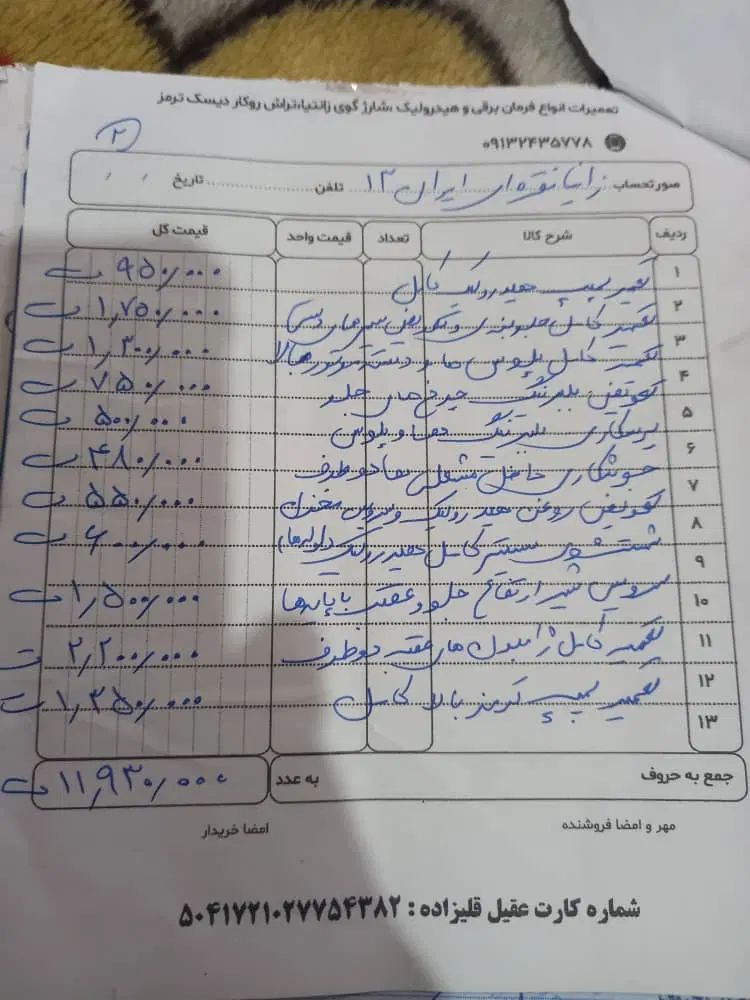 تعمیرات انواع فرمان برقی و هیدرولیک ،شارژ گوی زانتیا،تراش روکار دیسک ترمز
۰۹۱۳۲۴۳۵۷۷۸
۲
صورتحساب زانتیا نقره ای ایران ۱۳ تلفن تاریخ
ردیف شرح کالا تعداد قیمت واحد قیمت کل
۱ تعمیر پمپ هیدرولیک کامل ۹۵۰/۰۰۰ ت
۲ تعمیر کامل جلوبندی و تعویض سیبک های دستی ۱,۷۵۰/۰۰۰ ت
۳ تعمیر کامل پلوس ها و دسته موتور بالا ۱,۳۰۰/۰۰۰ ت
۴ تعویض بلبرینگ چرخ های جلو ۷۵۰/۰۰۰ ت
۵ پرسکاری بلبرینگ ها و پلوس ۵۰۰/۰۰۰ ت
۶ جوشکاری داخل مشعلی ها دو طرف ۴۸۰/۰۰۰ ت
۷ تعویض روغن هیدرولیک و سرویس مخزن ۵۵۰/۰۰۰ ت
۸ شستشوی سیستم کامل هیدرولیک (لوله ها) ۶۰۰/۰۰۰ ت
۹ سرویس شیر ارتفاع جلو و عقب با پایه ها ۱,۵۰۰/۰۰۰ ت
۱۰ تعمیر کامل ژامبون های عقب دو طرف ۲,۲۰۰/۰۰۰ ت
۱۱ تعمیر پمپ ترمز بالا کامل ۱,۳۵۰/۰۰۰ ت
۱۲
۱۳
جمع به حروف به عدد ۱۱,۹۳۰/۰۰۰ ت
مهر و امضا فروشنده امضا خریدار
شماره کارت عقیل قلیزاده : ۵۰۴۱۷۲۱۰۲۷۷۵۴۳۸۲